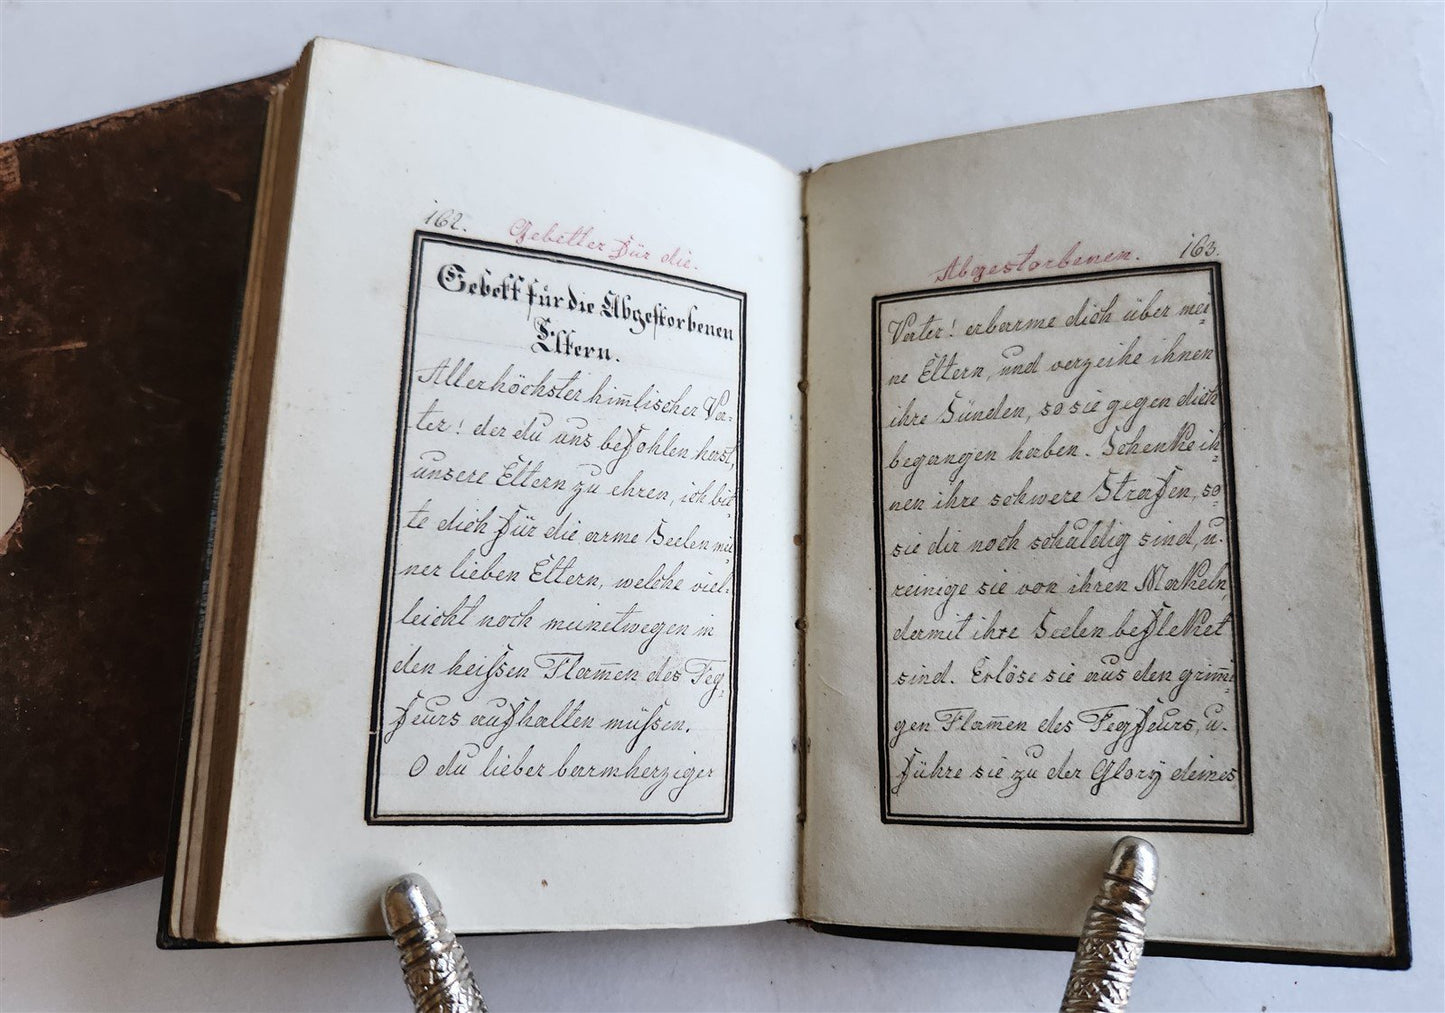 162.
Gebetter für die.
Gebett für die Abgestorbenen
Eltern.
Allerhöchster him̄lischer Va-
ter! der du uns befohlen hast,
unsere Eltern zu ehren, ich bit-
te dich für die arme Seelen mei-
ner lieben Eltern, welche viel-
leicht noch meinetwegen in
den heißen Flam̄en des Feg-
feurs aufhalten müßen.
O du lieber barmherziger
Abgestorbenen.
163.
Vater! erbarme dich über mei-
ne Eltern, und verzeihe ihnen
ihre Sünden, so sie gegen dich
begangen haben. Schenke ih-
nen ihre schwere Strafen, so
sie dir noch schuldig sind, u.
reinige sie von ihren Makeln
dermit ihre Seelen beflekket
sind. Erlöse sie aus den grim̄i-
gen Flam̄en des Fegfeurs, u.
führe sie zu der Glory deines